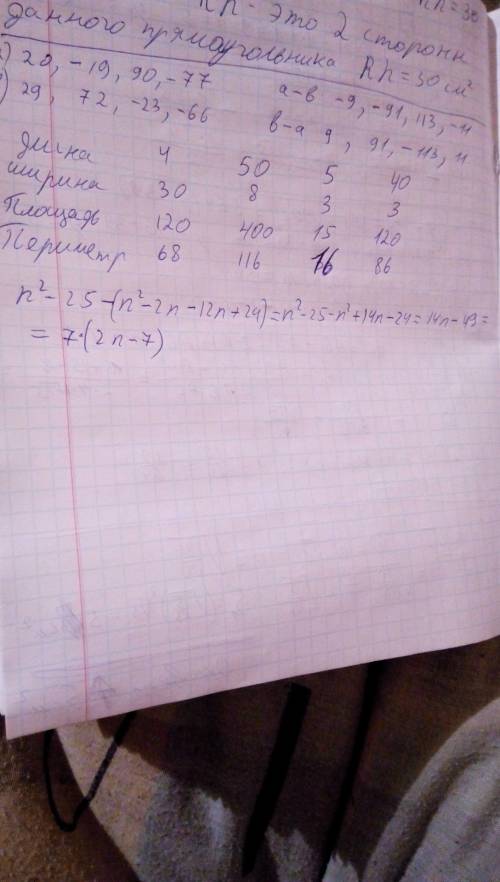 Rh - это 2 сторонн
данного прямоугольника Rh=30 см²
20, -19, 90, -77 а-в -9, -91, 113, -11
29, 72, -23, -66 в-а 9, 91, -113, 11
длина 4 50 5 40
ширина 30 8 3 3
Площадь 120 400 15 120
Периметр 68 116 16 86
n²-25-(n²-2n-12n+24)=n²-25-n²+14n-24=14n-49=
=7·(2n-7)